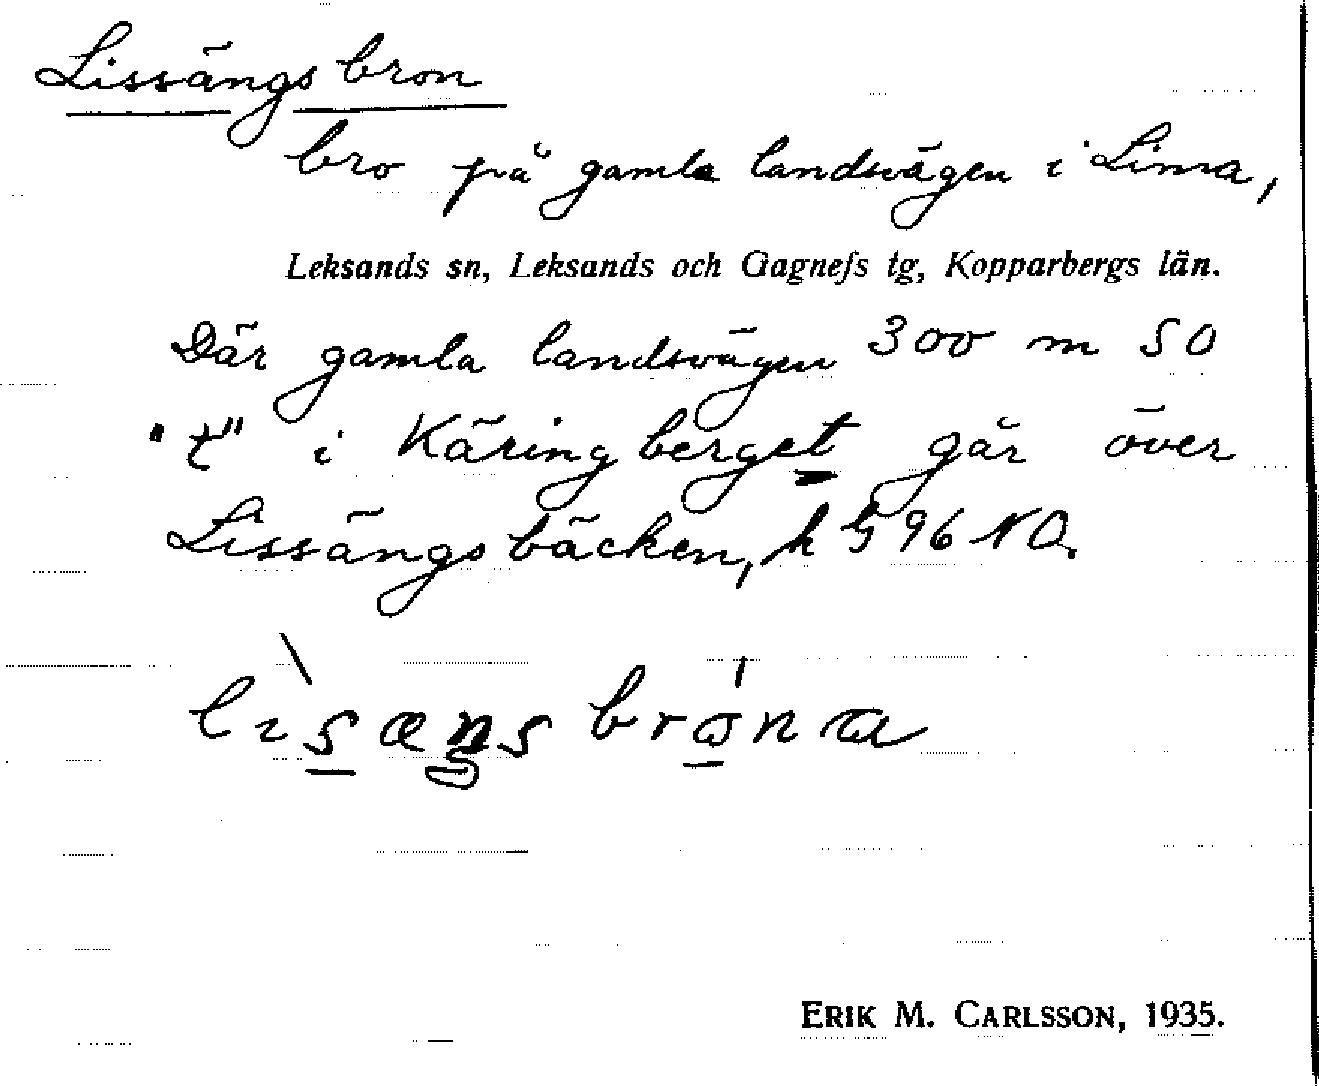 Lissängsbron
bro på gamla landsvägen i Lima,
Leksands sn, Leksands och Gagnefs tg, Kopparbergs län.
Där gamla landsvägen 300 m SO
"t" i Käringberget går över
Lissängsbäcken, k 96 NO.
ERIK M. CARLSSON, 1935.